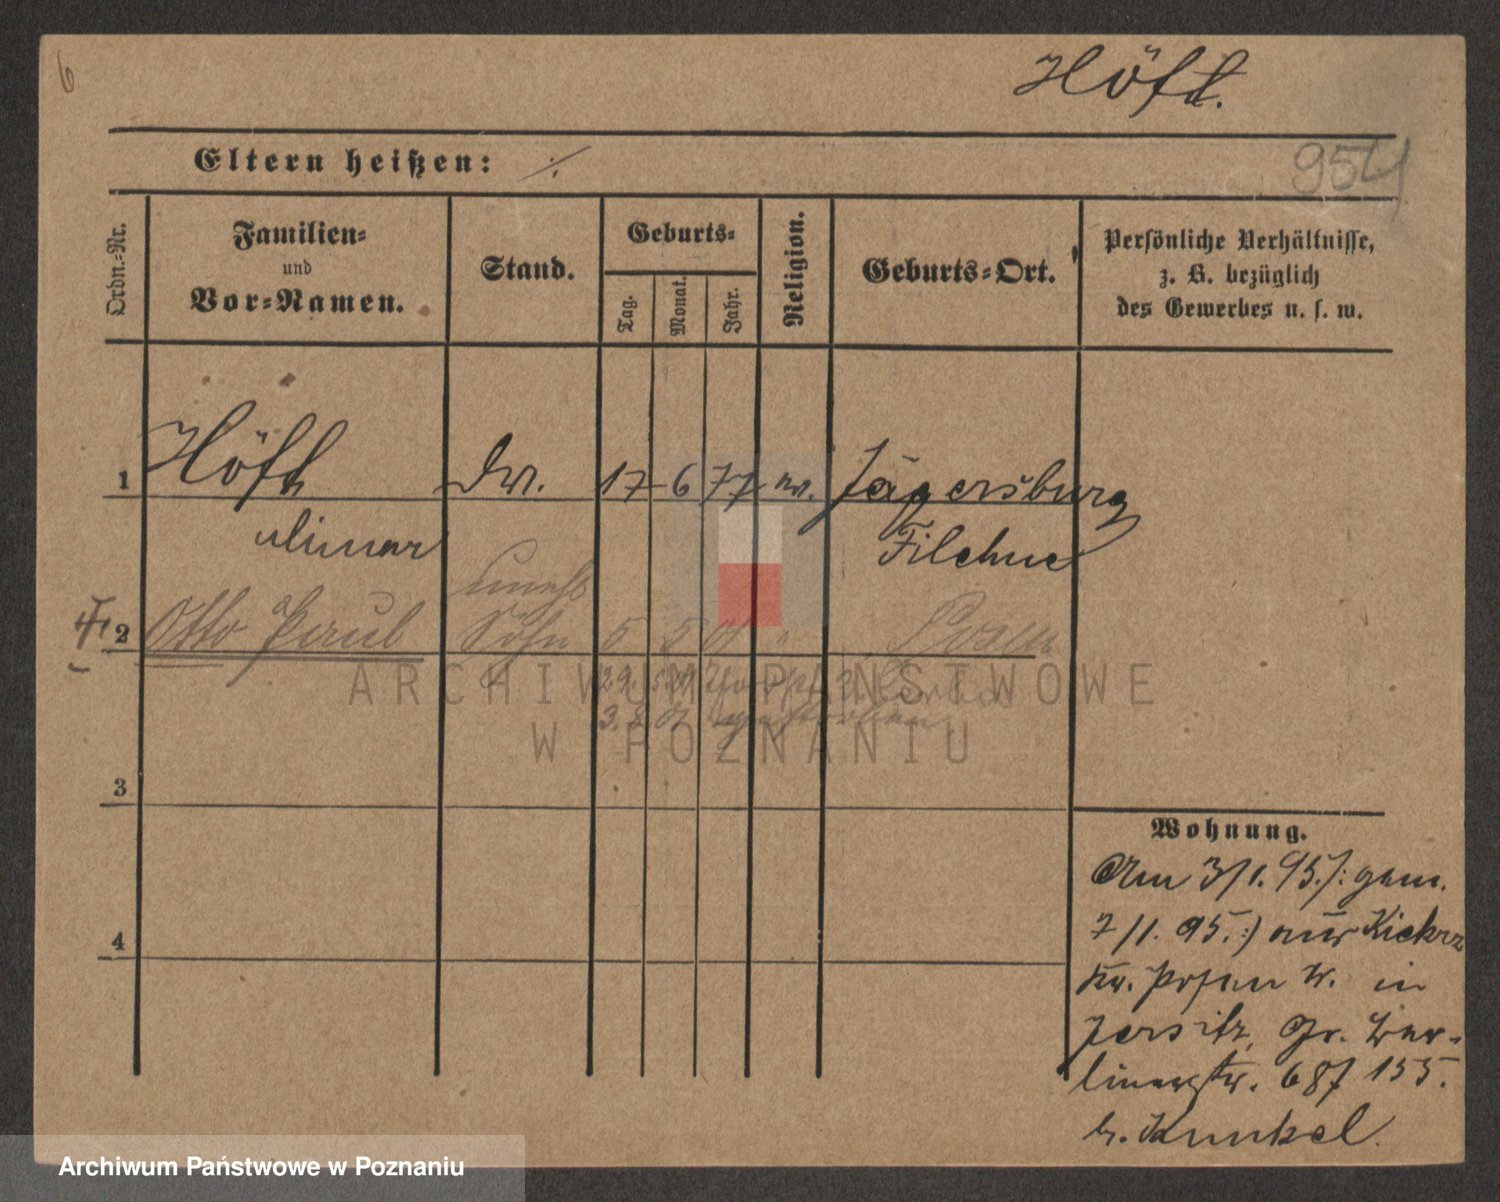 6
Höft.
Eltern heißen: ·/.
954
Ordn.-Nr.
Familien-
und
Vor-Namen.
Stand.
Geburts-
Tag.
Monat.
Jahr.
Religion.
Geburts-Ort.
Persönliche Verhältnisse,
z. B. bezüglich
des Gewerbes u. s. w.
1 Höft 17 6 77 ev. Jägersburg
Filehne
unehl
2 Otto Paul Sohn 5 5 01 " Posen
3
4
Wohnung.
Am 3/1. 95. /: gem.
7/1. 95. :/ aus Kiekrz
Kr. Posen W. in
Jersitz, Gr. Ber-
linerstr. 687 155.
b. Kunkel.
ARCHIWUM PAŃSTWOWE
W POZNANIU
Archiwum Państwowe w Poznaniu